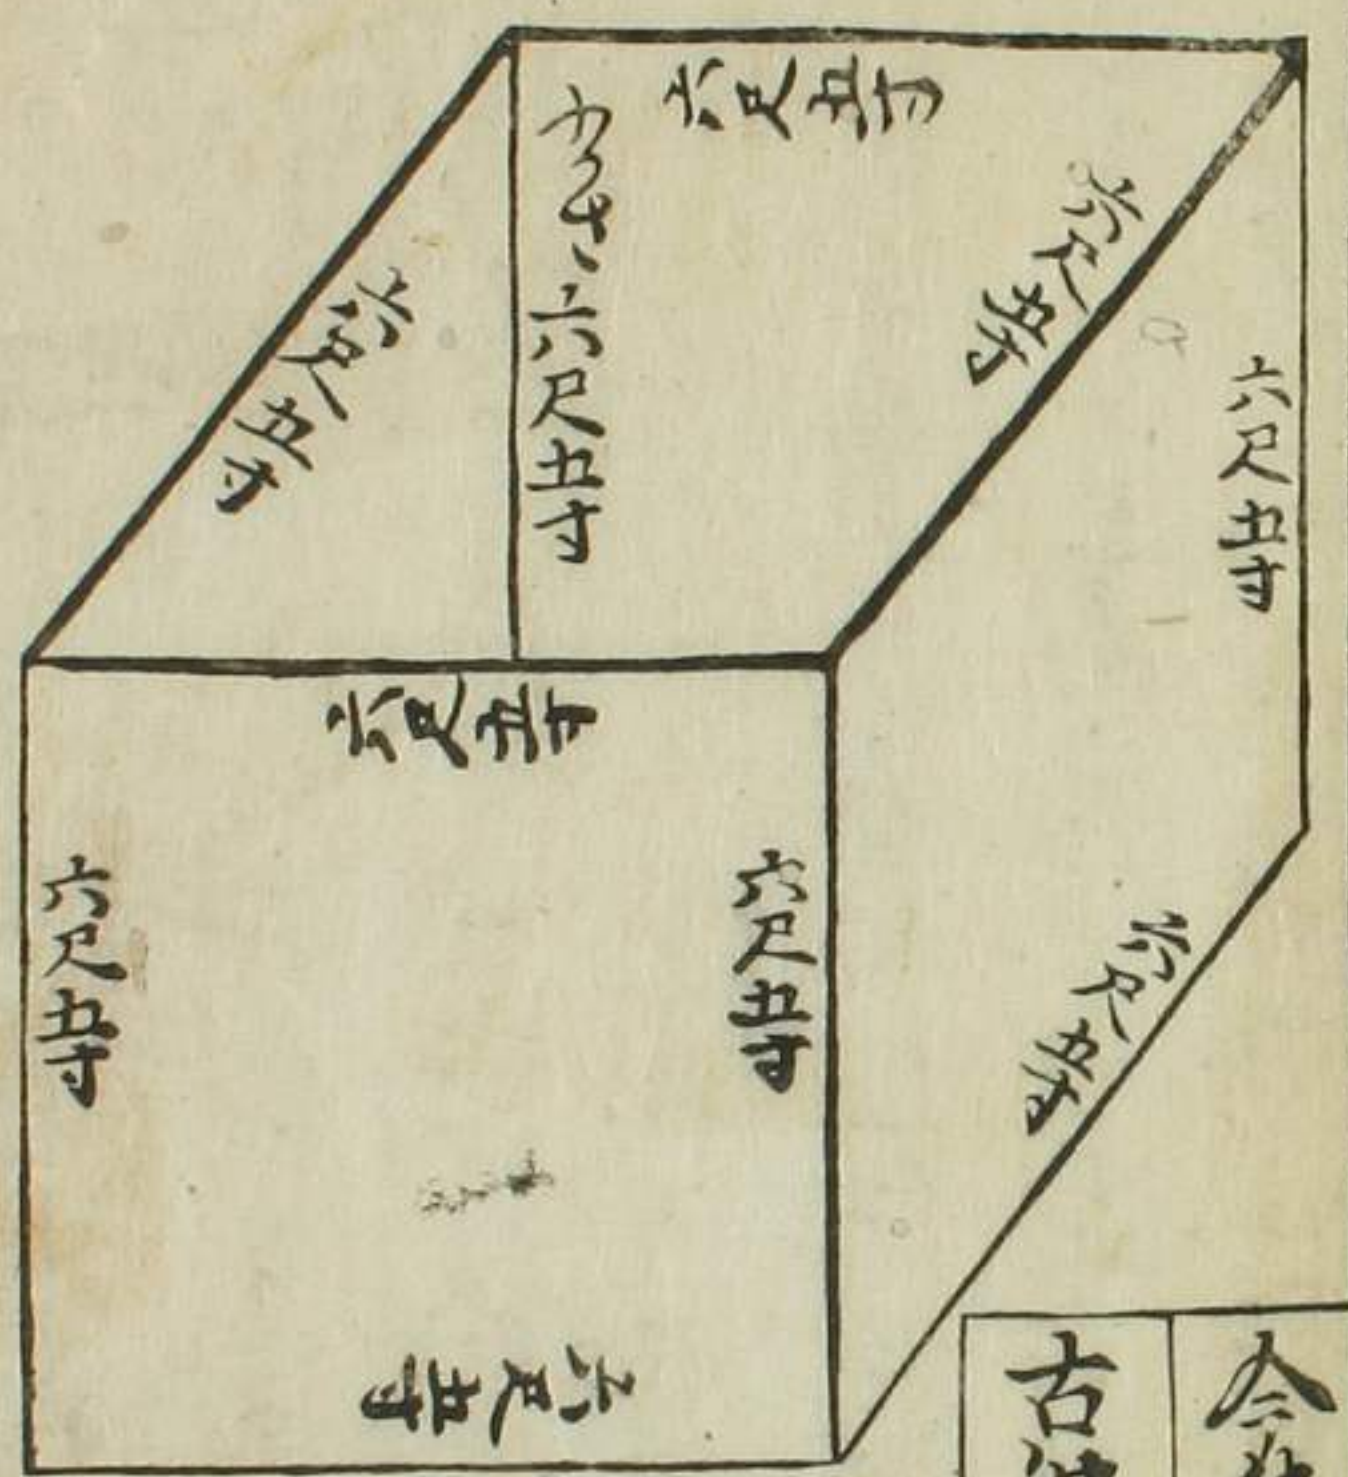 六尺五寸
ふかさ六尺五寸
六尺五寸
六尺五寸
六尺五寸
六尺五寸
六尺五寸
六尺五寸
六尺五寸
六尺五寸
今
古